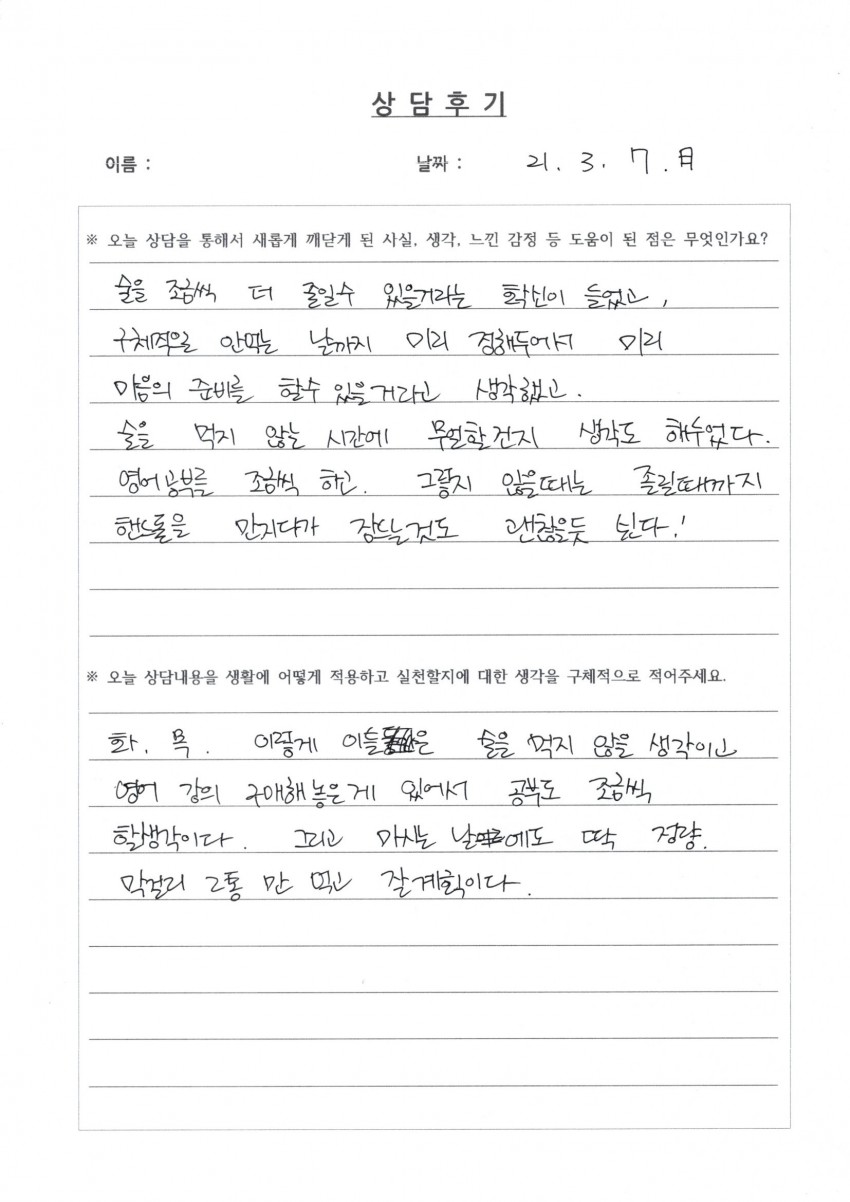 상 담 후 기
이름 :
날짜 : 21. 3. 7. 日
※ 오늘 상담을 통해서 새롭게 깨닫게 된 사실, 생각, 느낀 감정 등 도움이 된 점은 무엇인가요?
술을 조금씩 더 줄일수 있을거라는 확신이 들었고,
구체적으로 안먹는 날까지 미리 정해두어서 미리
마음의 준비를 할수 있을거라고 생각했고.
술을 먹지 않는 시간에 무얼할건지 생각도 해두었다.
영어공부를 조금씩 하고. 그렇지 않을때는 졸릴때까지
핸드폰을 만지다가 잠드는것도 괜찮을듯 싶다!
※ 오늘 상담내용을 생활에 어떻게 적용하고 실천할지에 대한 생각을 구체적으로 적어주세요.
화, 목. 이렇게 이틀은 술을 먹지 않을 생각이고
영어 강의 구매해놓은게 있어서 공부도 조금씩
할생각이다. 그리고 마시는 날에도 딱 정량.
막걸리 2통 만 먹고 잘계획이다.